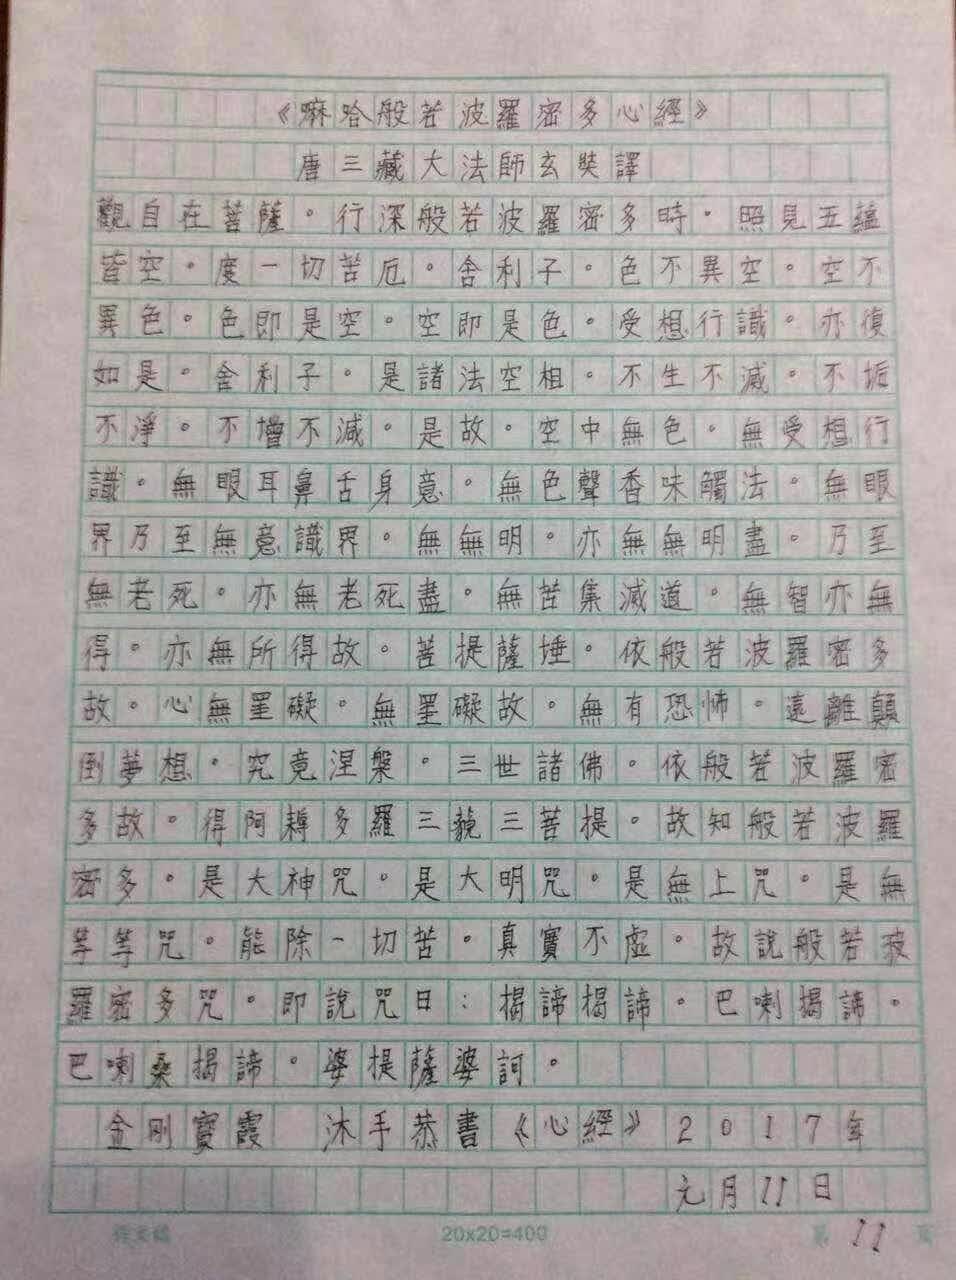 《嘛哈般若波羅密多心經》
唐三藏大法師玄奘譯
觀自在菩薩。行深般若波羅密多時。照見五蘊
皆空。度一切苦厄。舍利子。色不異空。空不
異色。色即是空。空即是色。受想行識。亦復
如是。舍利子。是諸法空相。不生不滅。不垢
不淨。不增不減。是故。空中無色。無受想行
識。無眼耳鼻舌身意。無色聲香味觸法。無眼
界乃至無意識界。無無明。亦無無明盡。乃至
無老死。亦無老死盡。無苦集滅道。無智亦無
得。亦無所得故。菩提薩埵。依般若波羅密多
故。心無罣礙。無罣礙故。無有恐怖。遠離顛
倒夢想。究竟涅槃。三世諸佛。依般若波羅密
多故。得阿耨多羅三藐三菩提。故知般若波羅
密多。是大神咒。是大明咒。是無上咒。是無
等等咒。能除一切苦。真實不虛。故說般若波
羅密多咒。即說咒曰：揭諦揭諦。巴喇揭諦。
巴喇桑揭諦。婆提薩婆訶。
金剛寶霞 沐手恭書《心經》2017年
元月11日
20x20=400 第11頁